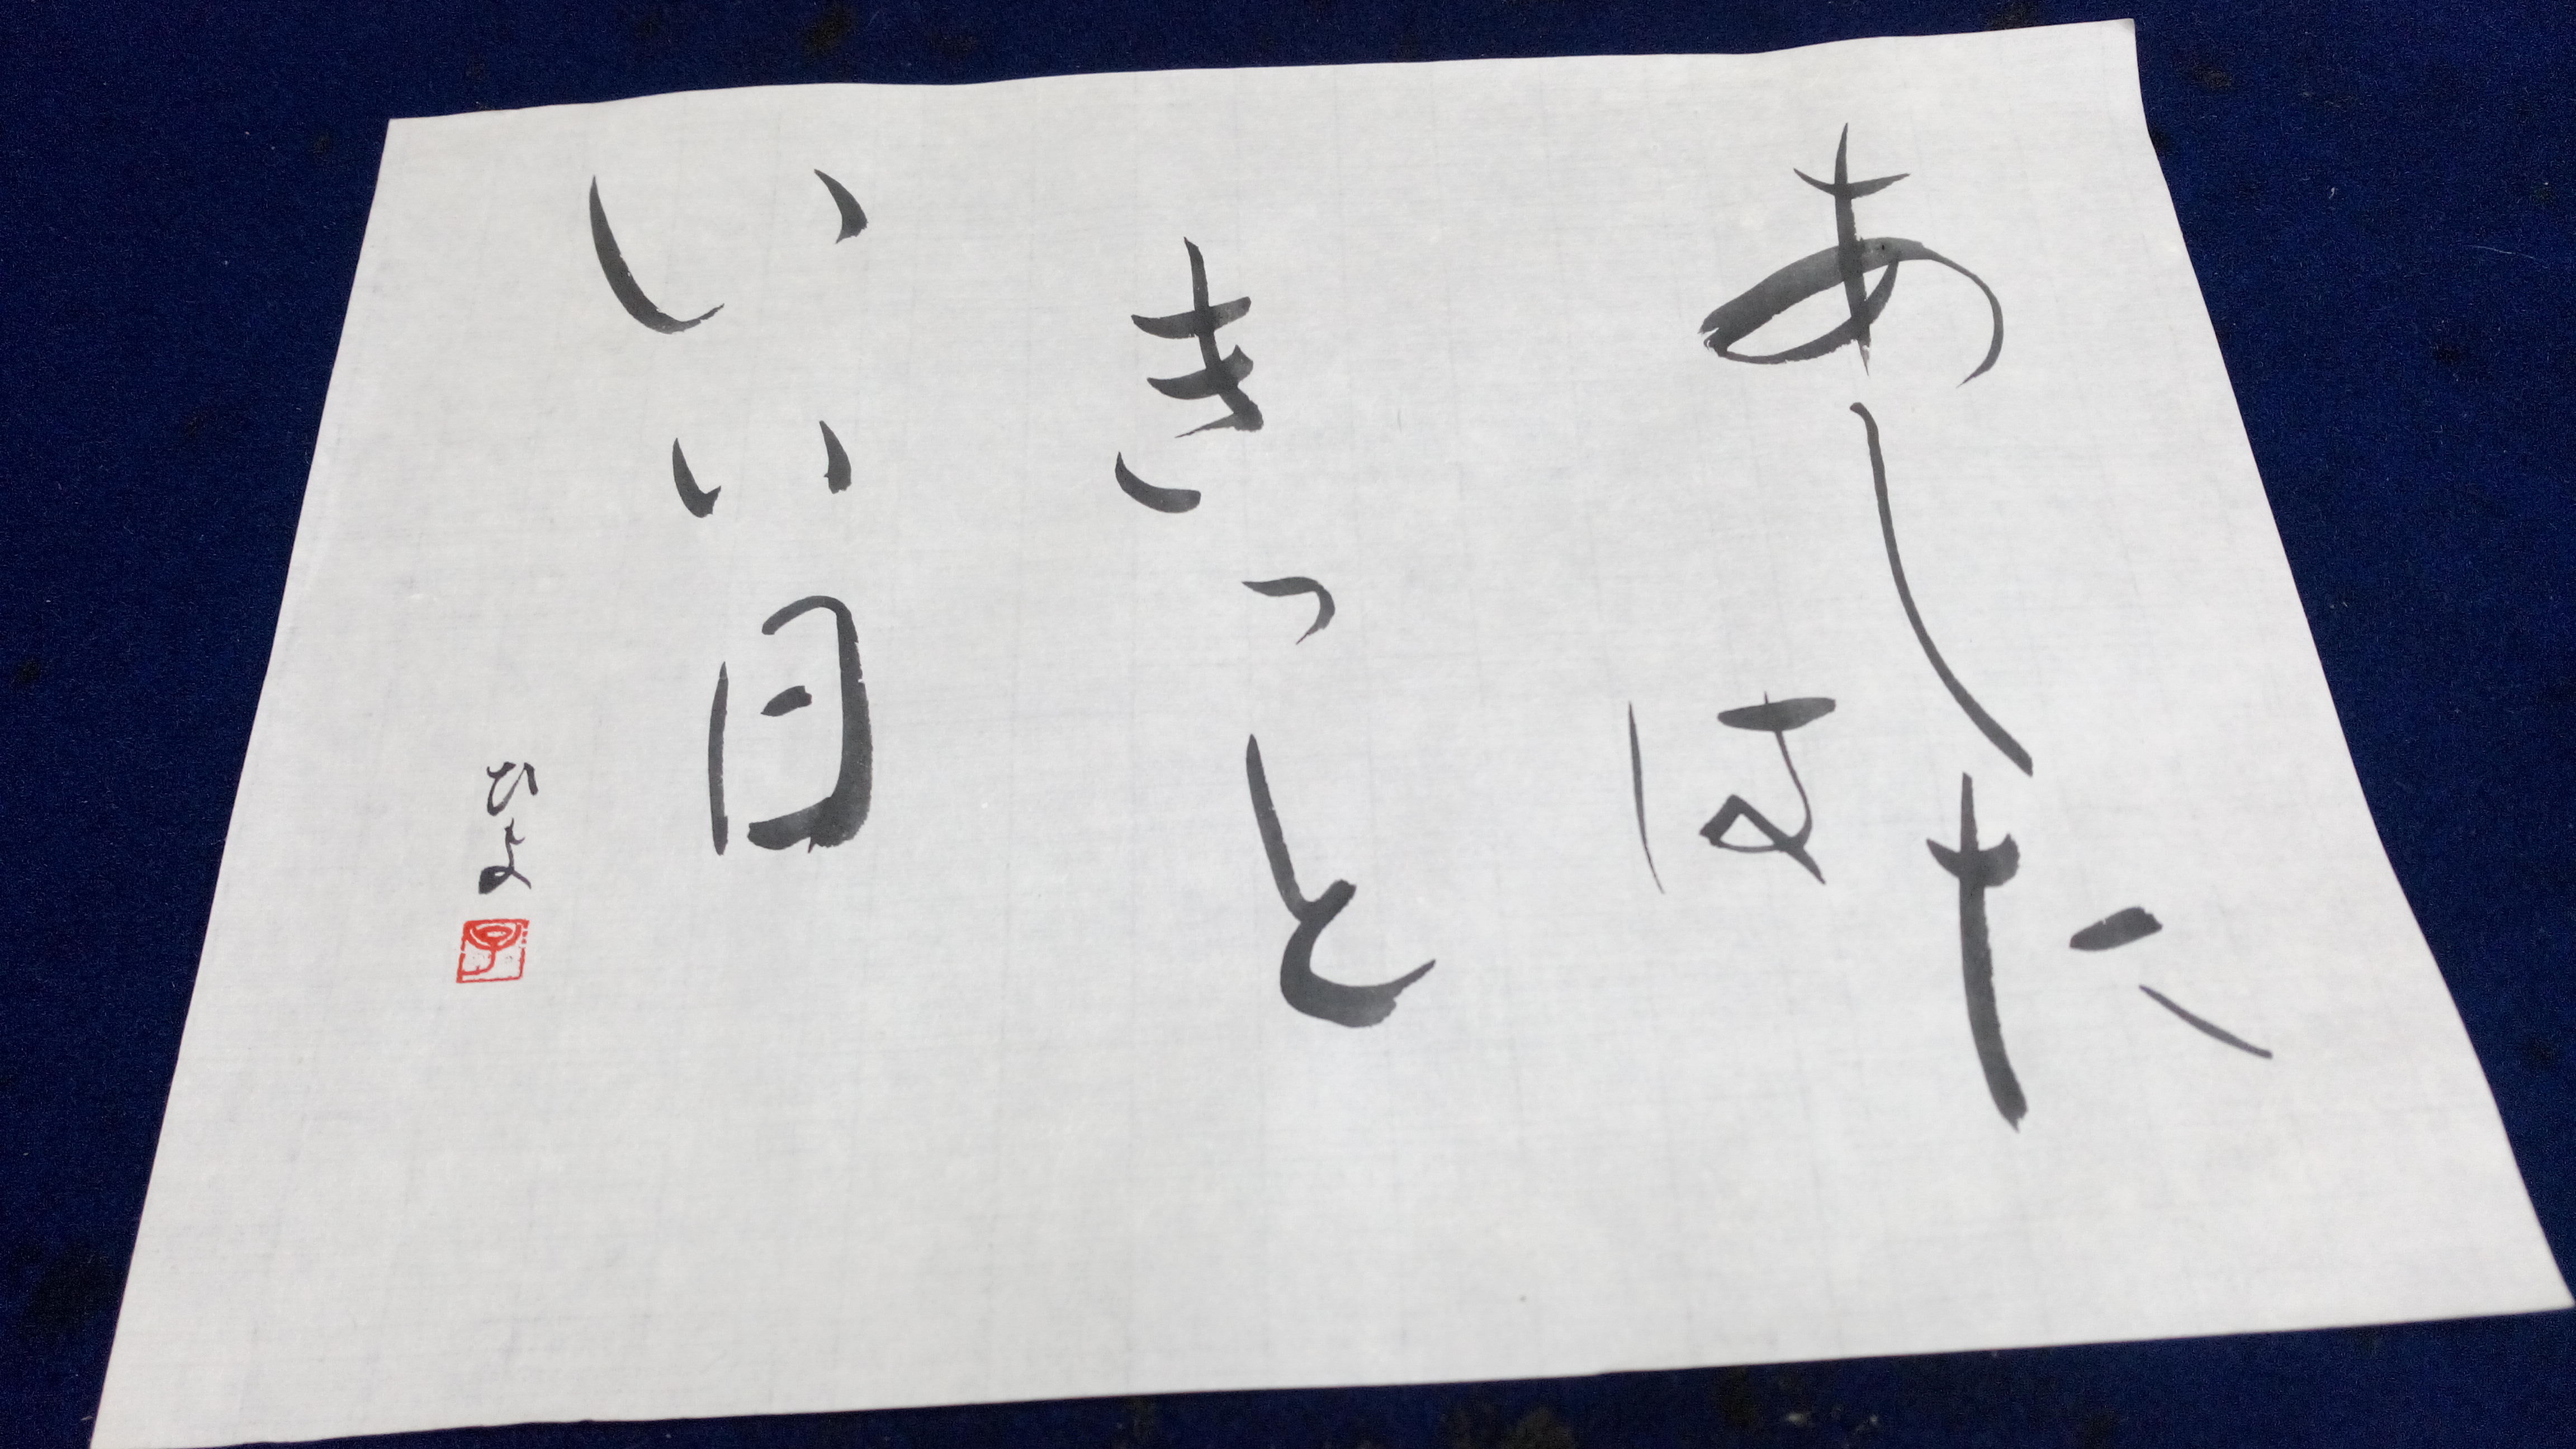 あしたは
きっと
いい日
ひよ